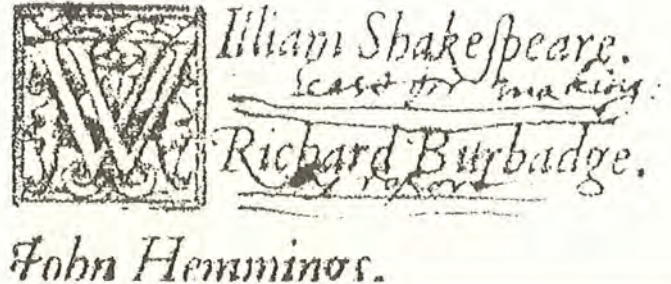 William Shakeſpeare.
Least for making
Richard Burbadge.
By report
John Hemmings.